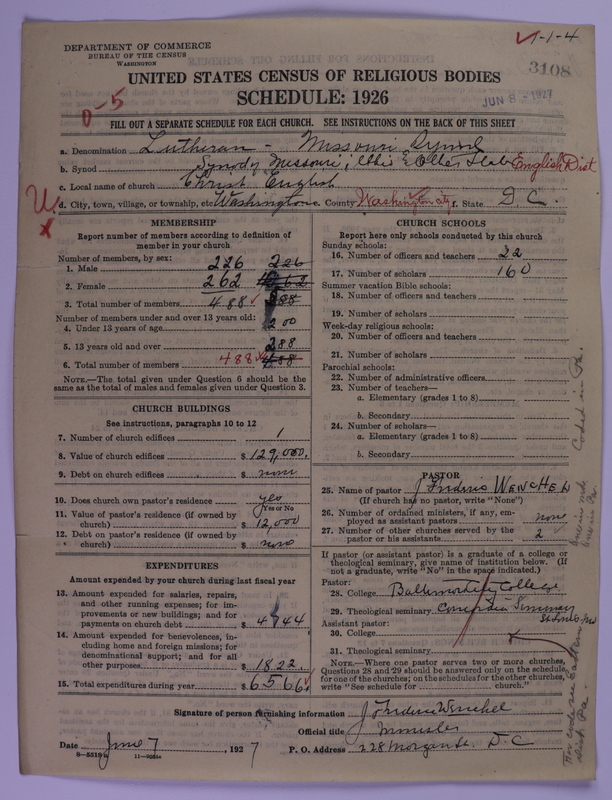 DEPARTMENT OF COMMERCE
BUREAU OF THE CENSUS
WASHINGTON
1-1-4
3108
UNITED STATES CENSUS OF RELIGIOUS BODIES
SCHEDULE: 1926
JUN 8 - 1927
0-5
FILL OUT A SEPARATE SCHEDULE FOR EACH CHURCH. SEE INSTRUCTIONS ON THE BACK OF THIS SHEET
a. Denomination Lutheran - Missouri Synod
b. Synod Synod of Missouri, Ohio & Other States English Dist
c. Local name of church Christ English
d. City, town, village, or township, etc. Washington e. County Washington city f. State D. C.
MEMBERSHIP
Report number of members according to definition of member in your church
Number of members, by sex:
1. Male 226 226
2. Female 262
3. Total number of members 488
Number of members under and over 13 years old:
4. Under 13 years of age 200
5. 13 years old and over 288
6. Total number of members 488 488
NOTE.—The total given under Question 6 should be the same as the total of males and females given under Question 3.
CHURCH BUILDINGS
See instructions, paragraphs 10 to 12
7. Number of church edifices 1
8. Value of church edifices $ 129,000.
9. Debt on church edifices $ none
10. Does church own pastor's residence yes
Yes or No
11. Value of pastor's residence (if owned by church) $ 12,000
12. Debt on pastor's residence (if owned by church) $ none
EXPENDITURES
Amount expended by your church during last fiscal year
13. Amount expended for salaries, repairs, and other running expenses; for improvements or new buildings; and for payments on church debt $ 4744
14. Amount expended for benevolences, including home and foreign missions; for denominational support; and for all other purposes $ 1822.
15. Total expenditures during year $ 6566.
CHURCH SCHOOLS
Report here only schools conducted by this church
Sunday schools:
16. Number of officers and teachers 22
17. Number of scholars 160
Summer vacation Bible schools:
18. Number of officers and teachers
19. Number of scholars
Week-day religious schools:
20. Number of officers and teachers
21. Number of scholars
Parochial schools:
22. Number of administrative officers
23. Number of teachers—
a. Elementary (grades 1 to 8)
b. Secondary
24. Number of scholars—
a. Elementary (grades 1 to 8)
b. Secondary
PASTOR
25. Name of pastor J Frederic WENCHEL
(If church has no pastor, write "None")
26. Number of ordained ministers, if any, employed as assistant pastors none
27. Number of other churches served by the pastor or his assistants 2
If pastor (or assistant pastor) is a graduate of a college or theological seminary, give name of institution below. (If not a graduate, write "No" in the space indicated.)
Pastor:
28. College College
29. Theological seminary Concordia Seminary
St Louis Mo
Assistant pastor:
30. College
31. Theological seminary
NOTE.—Where one pastor serves two or more churches, Questions 28 and 29 should be answered only on the schedule for one of the churches; on the schedules for the other churches, write "See schedule for church."
Coded in Pa.
Signature of person furnishing information J Frederic Wenchel
Official title Minister
Date June 7, 1927
P. O. Address 228 Morgan St. D. C